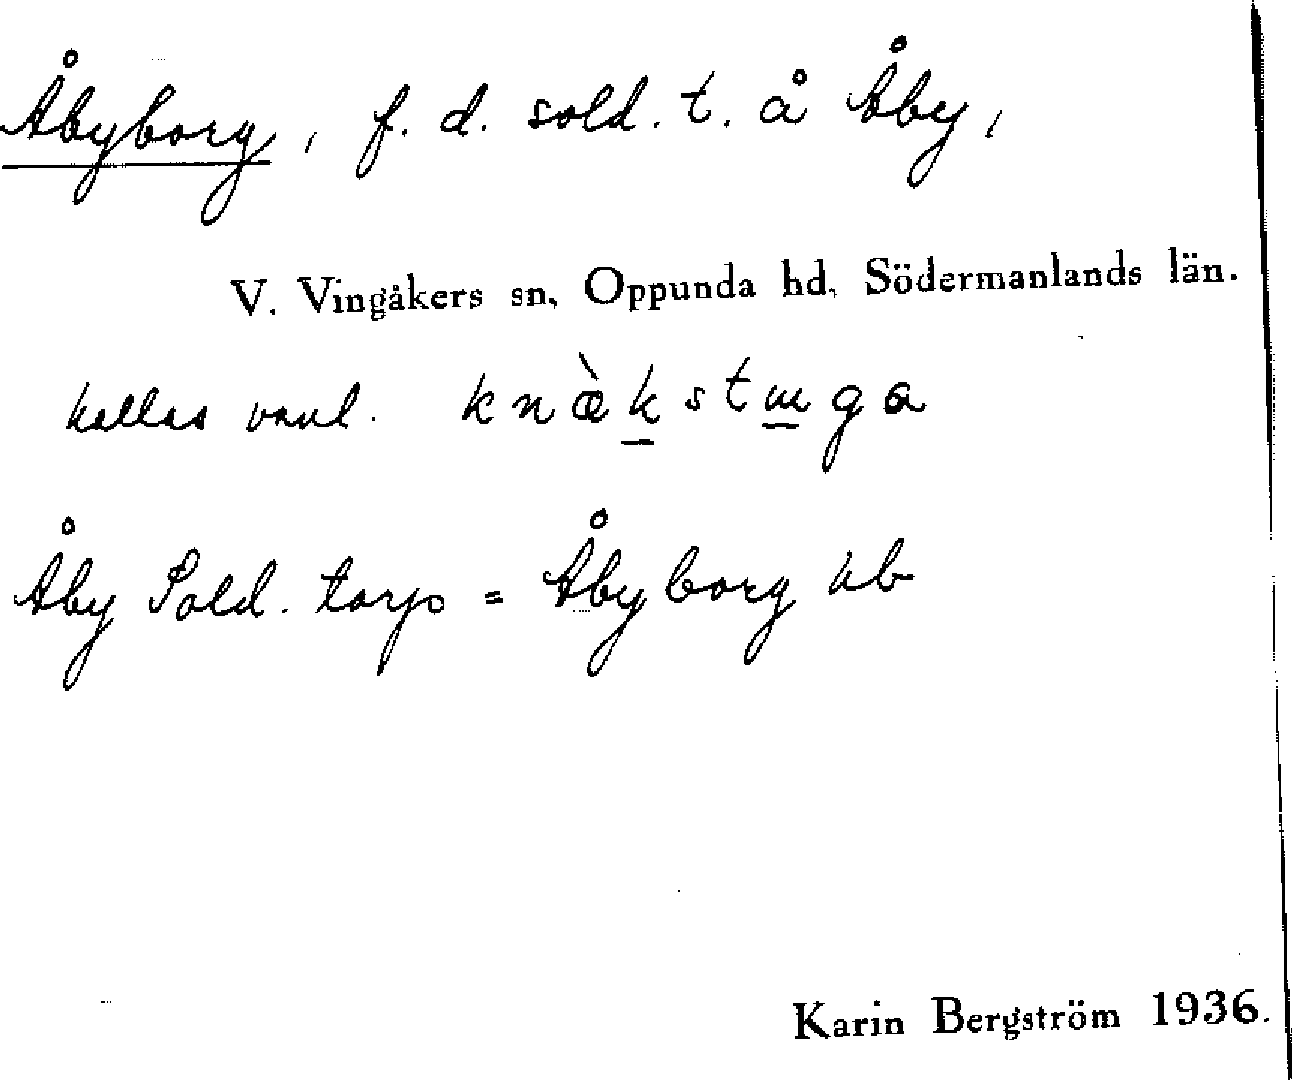 Åbyborg, f. d. sold. t. å Åby,
V. Vingåkers sn, Oppunda hd, Södermanlands län.
kallas vanl. knæ̀kstɯga
Åby Sold. torp = Åbyborg ub
Karin Bergström 1936.